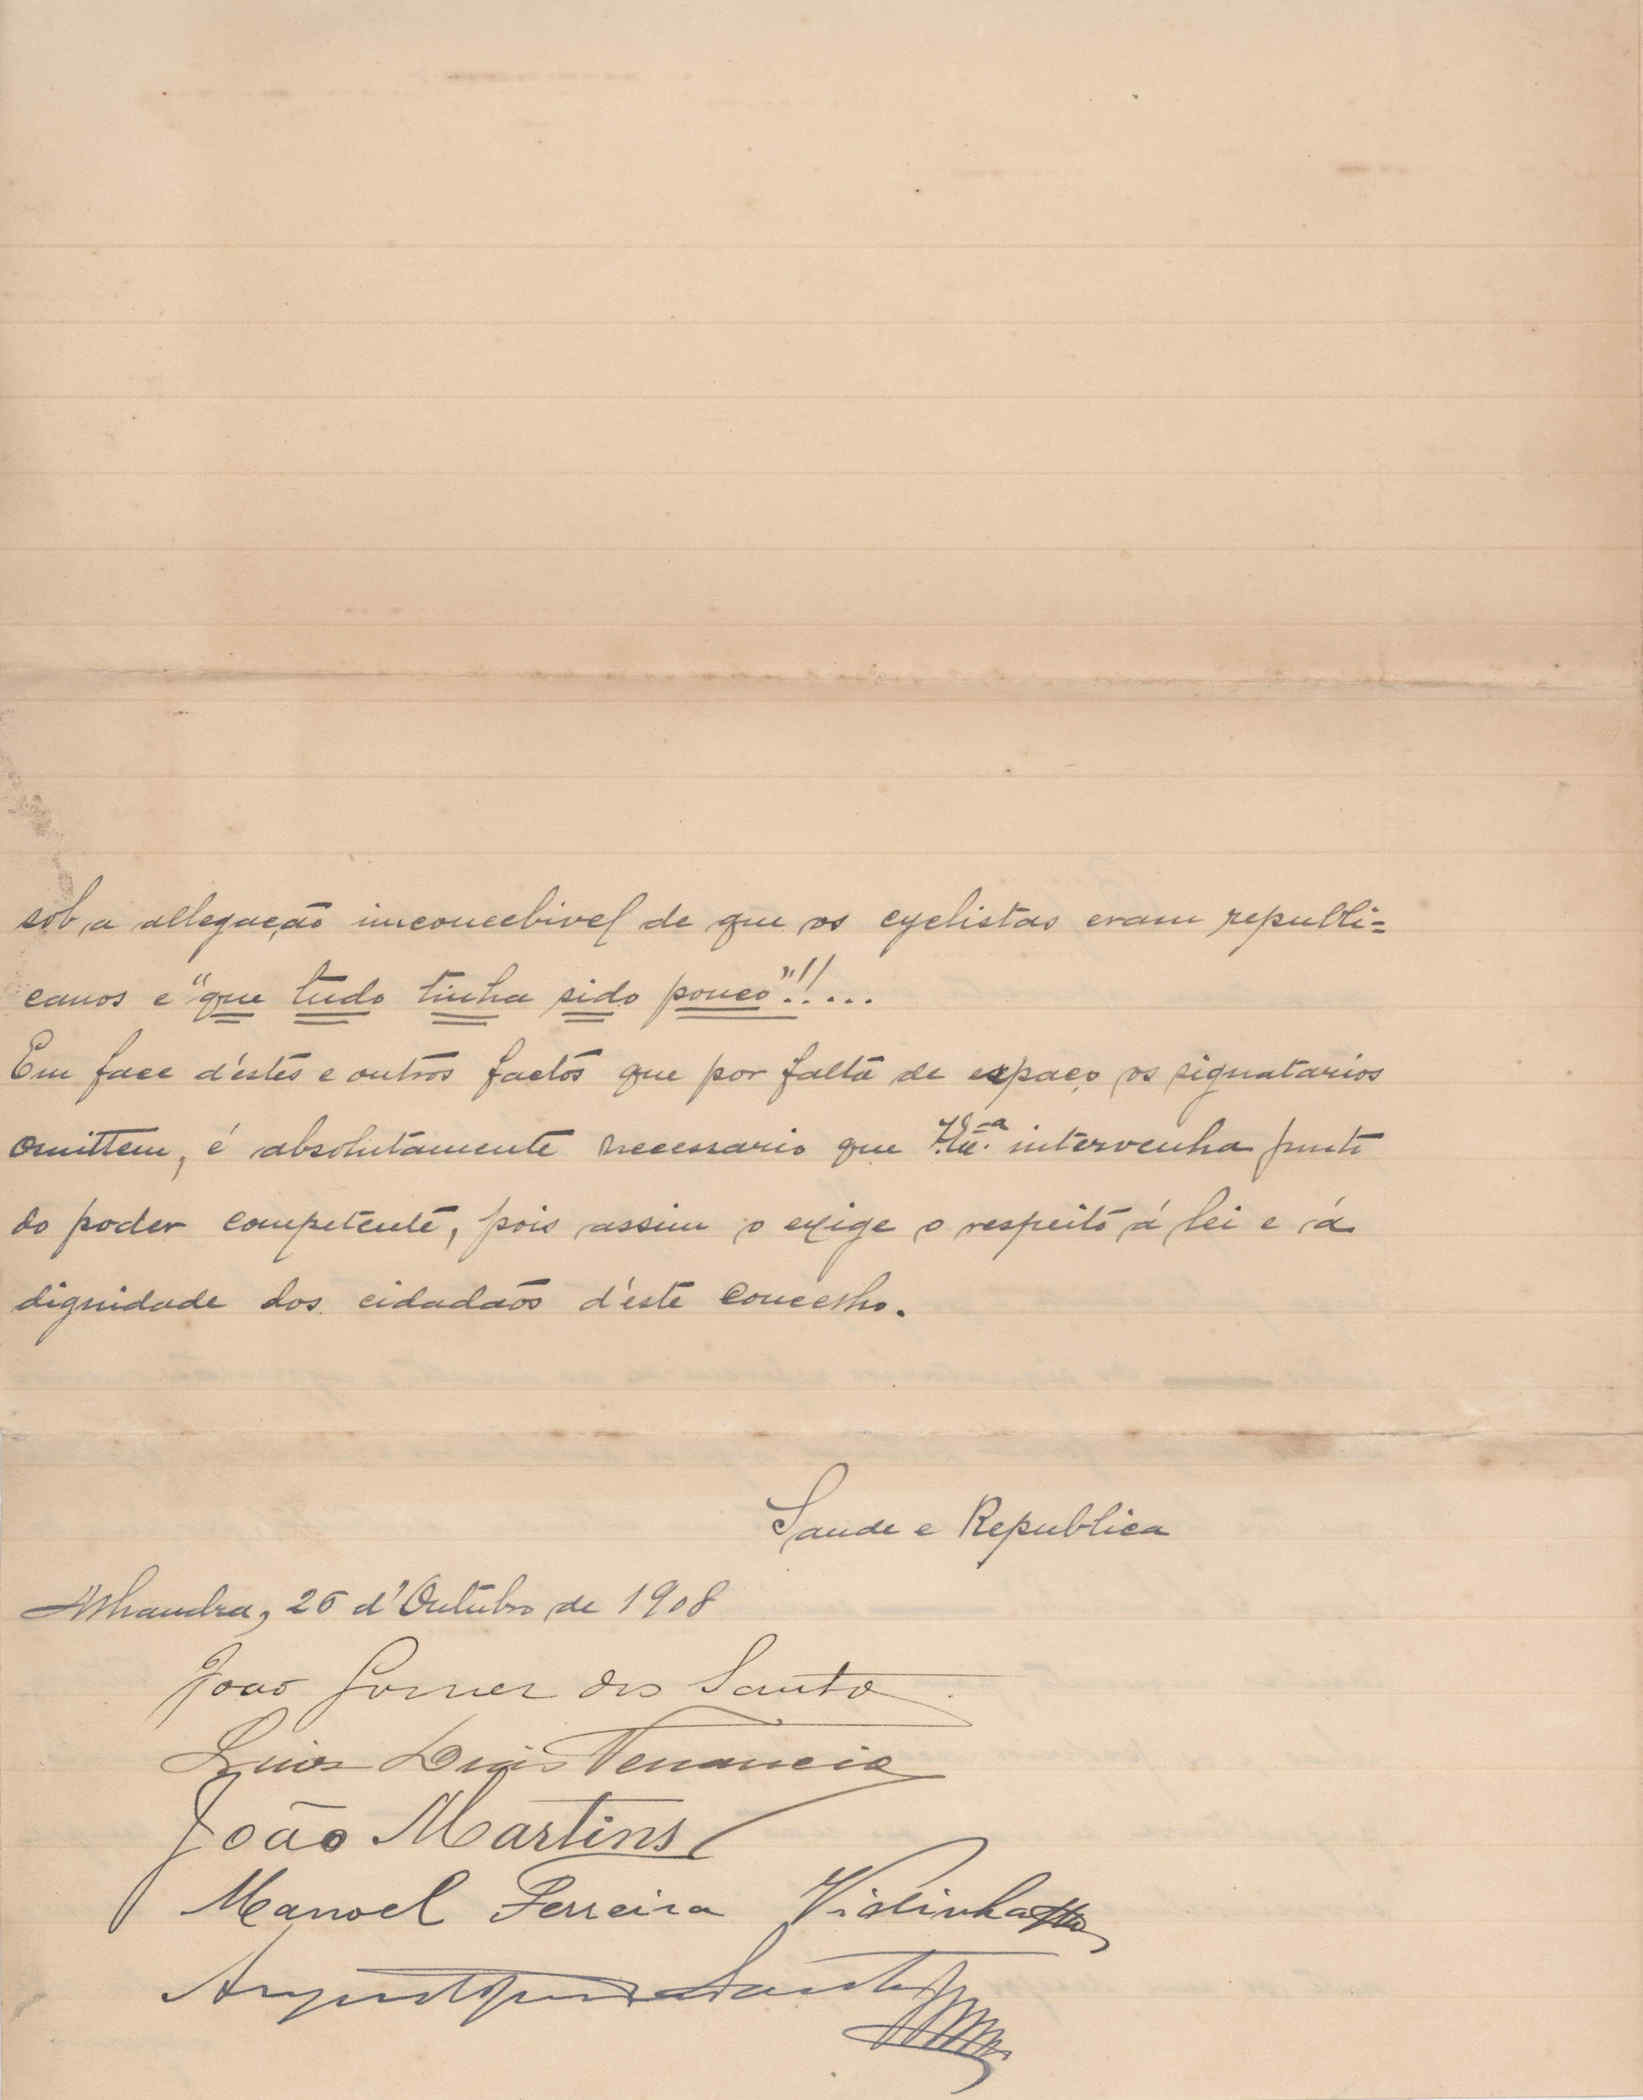 sob a allegação inconcebivel de que os cyclistas eram republi=
canos e "que tudo tinha sido pouco"!!....
Em face d'estes e outros factos que por falta de espaço os signatarios
omittem, é absolutamente necessario que intervenha junto
do poder competente, pois assim o exige o respeito á lei e á
dignidade dos cidadãos d'este concelho.
Saude e Republica
Alhandra, 26 d'Outubro de 1908
João Gomes dos Santos
Luis Venancio
João Martins
Manoel Ferreira
Santos